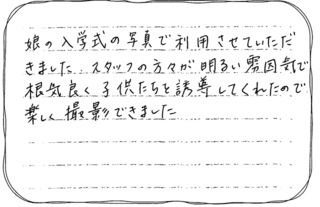 娘の入学式の写真で利用させていただ
きました。スタッフの方々が明るい雰囲気で
根気良く子供たちを誘導してくれたので
楽しく撮影できました